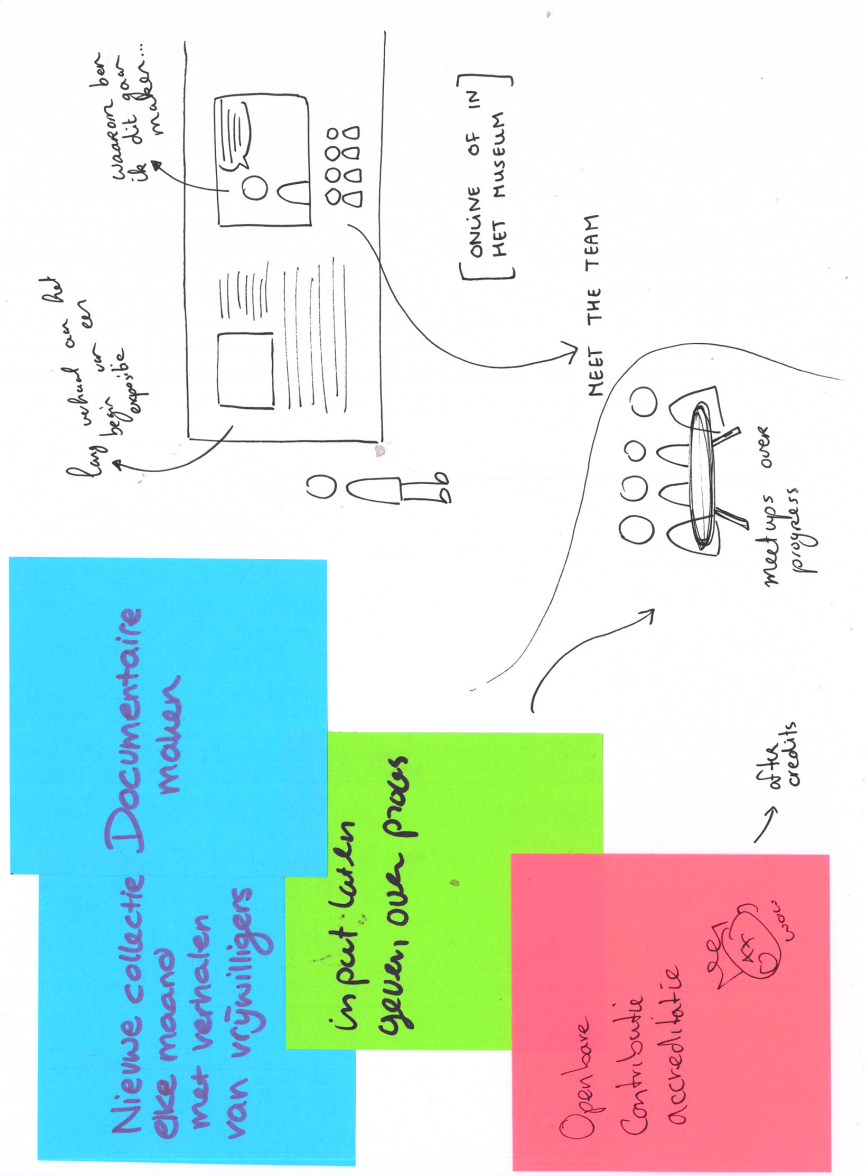 Nieuwe collectie
elke maand
met verhalen
van vrijwilligers
Documentaire
maken
input laten
geven over proces
Openbare
Contributie
accreditatie
XX
wow
after
credits
lang verhaal aan het
begin van een
expositie
waarom ben
ik dit gaan
maken...
[ONLINE OF IN
HET MUSEUM]
MEET THE TEAM
meetups over
progress